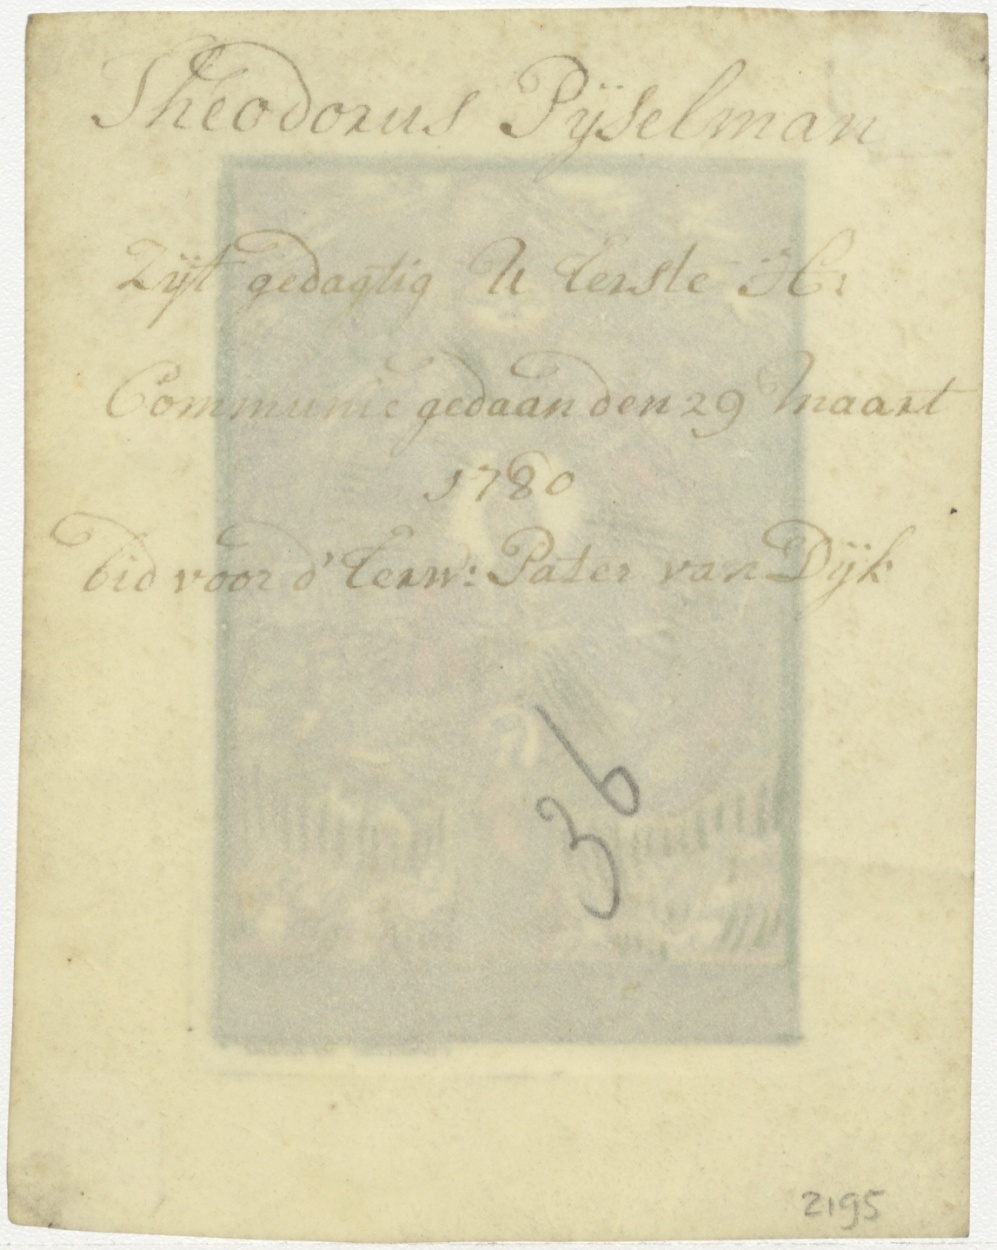 Theodorus Pÿselman
Zÿt gedagtig U Eerste H:
Communie gedaan den 29 Maart
1780
bid voor d' Eerw: Pater van Dÿk
36
2195